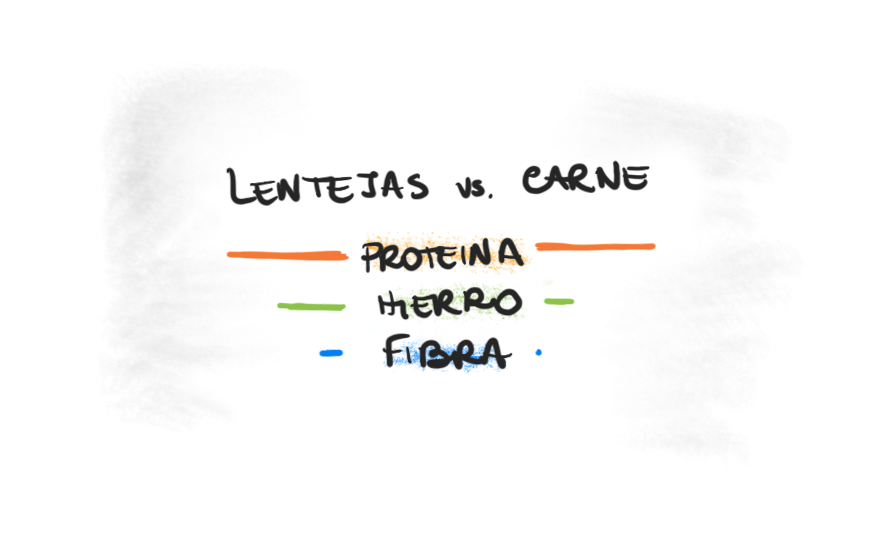 LENTEJAS vs. CARNE
PROTEINA
HIERRO
FIBRA